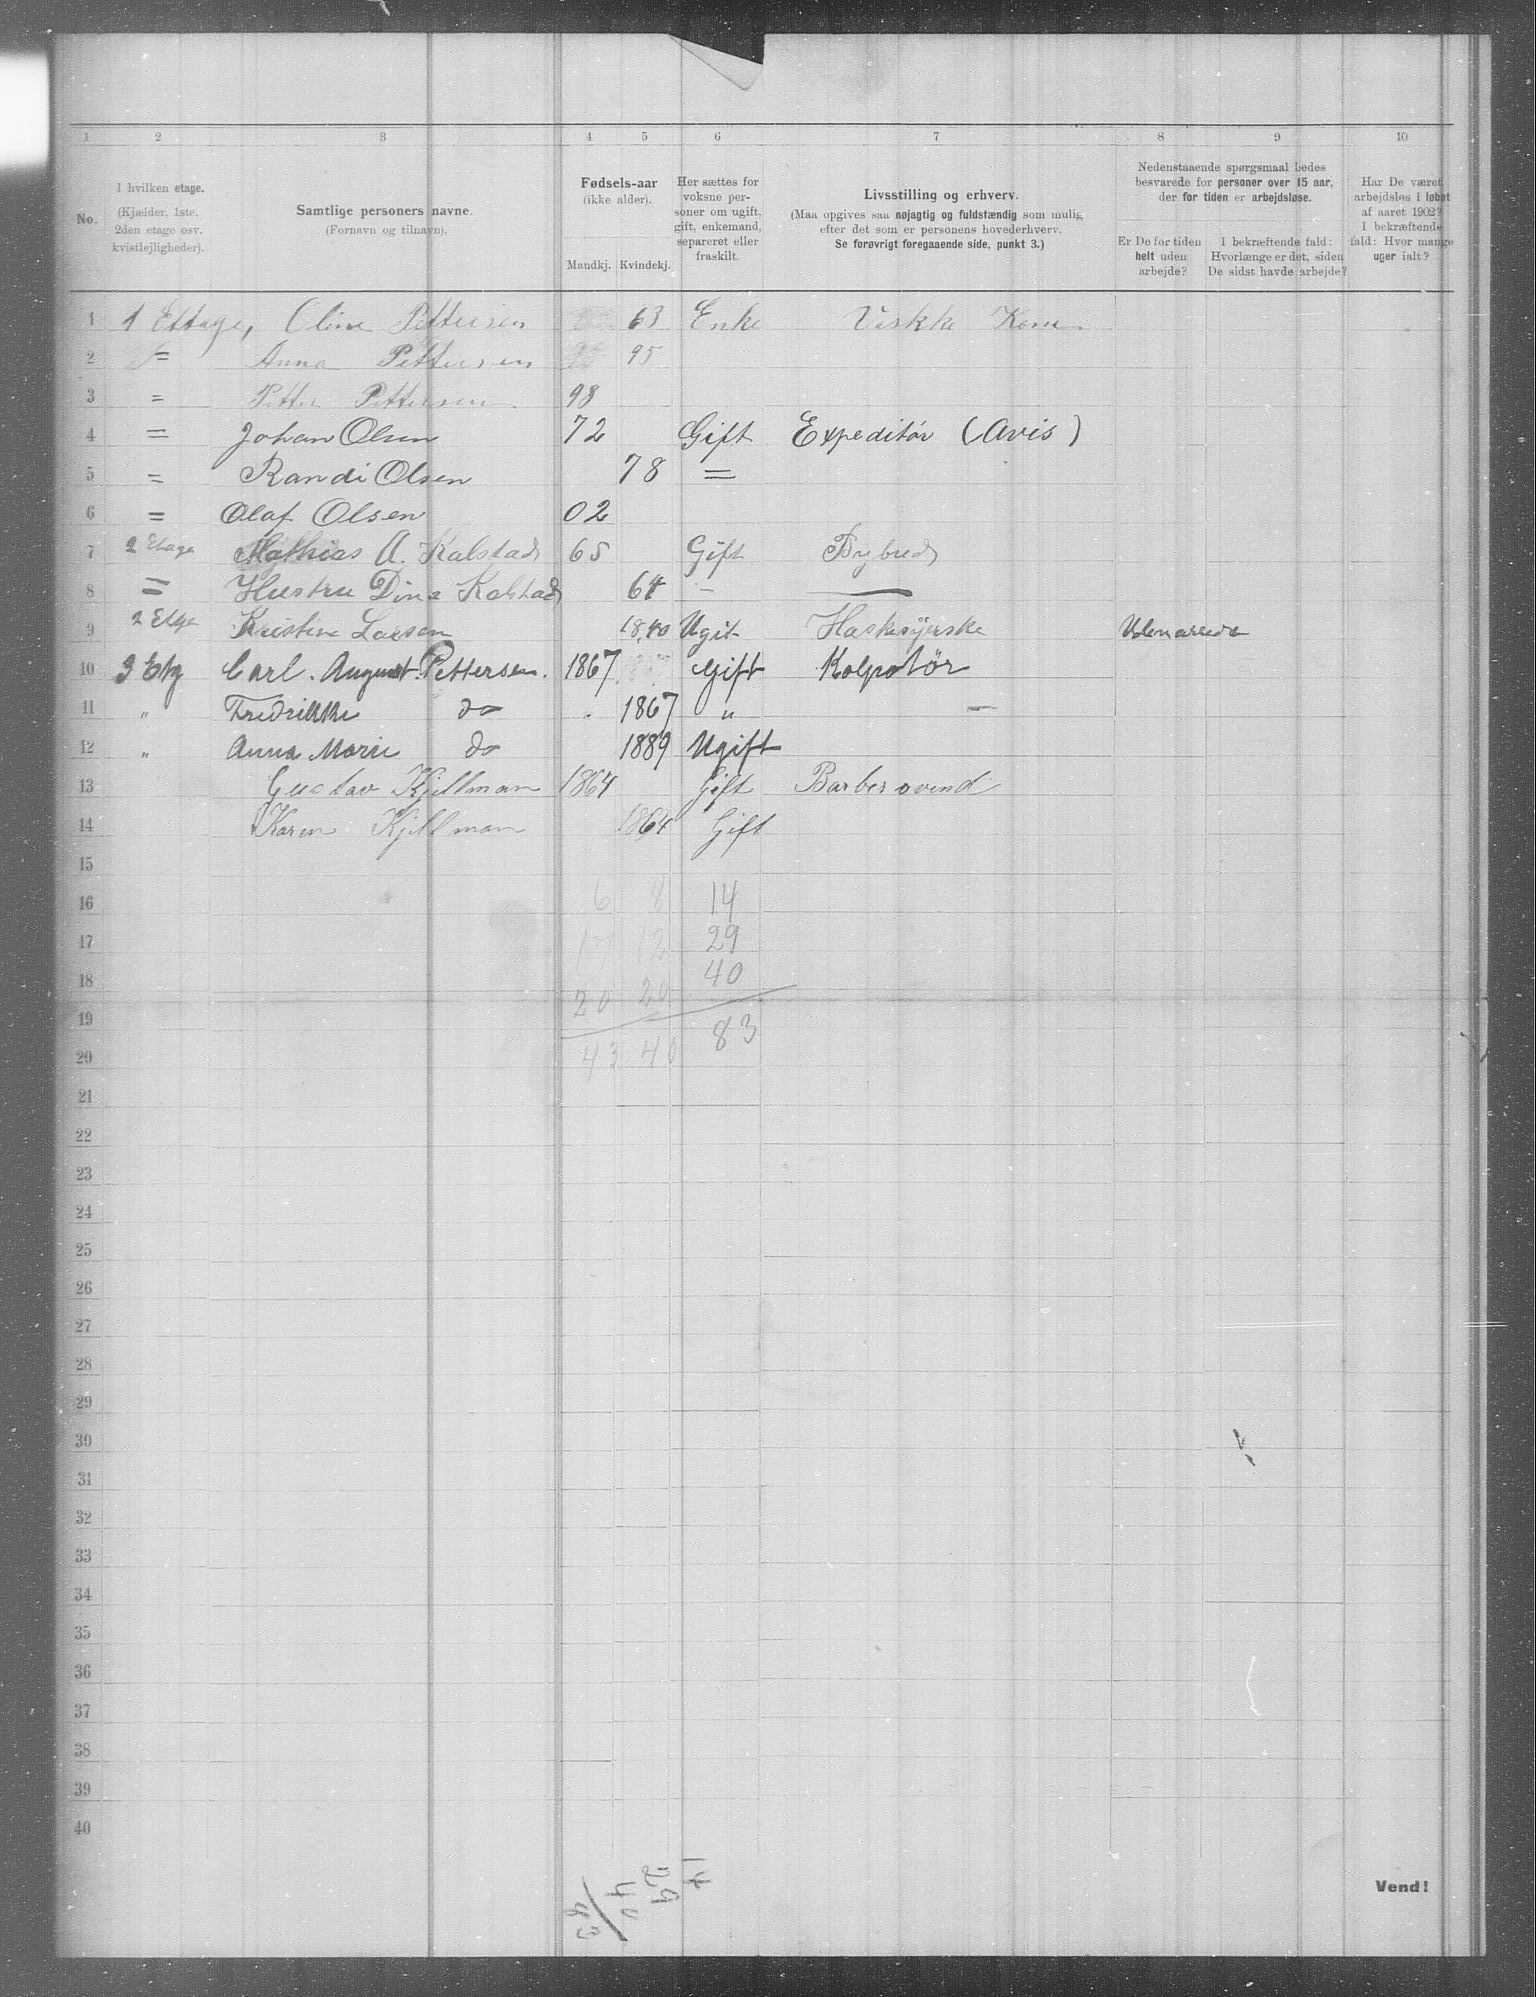 1 2 3 4 5 6 7 8 9 10
No.
I hvilken etage. (Kjælder, 1ste, 2den etage osv. kvistlejligheder).
Samtlige personers navne. (Fornavn og tilnavn).
Fødsels-aar (ikke alder). Mandkj. Kvindekj.
Her sættes for voksne personer om ugift, gift, enkemand, separeret eller fraskilt.
Livsstilling og erhverv. (Maa opgives saa nøjagtig og fuldstændig som mulig, efter det som er personens hovederhverv. Se forøvrigt foregaaende side, punkt 3.)
Nedenstaaende spørgsmaal bedes besvarede for personer over 15 aar, der for tiden er arbejdsløse.
Er De for tiden helt uden arbejde?
I bekræftende fald: Hvorlænge er det, siden De sidst havde arbejde?
Har De været arbejdsløs i løbet af aaret 1902? I bekræftende fald: Hvor mange uger ialt?
1 1 Ettage, Oline Pettersen 63 Enke Viskke Kone
2 = Anna Pettersen 95
3 = Petter Pettersen 98
4 = Johan Olsen 72 Gift Expeditør (Avis)
5 = Randi Olsen 78 =
6 = Olaf Olsen 02
7 2 Etage Mathias A. Kalstad 65 Gift Bybud
8 = Hustru Dina Kalstad 64 - —
9 2 Etge Kristine Larsen 1840 Ugit Haskesyerske
10 3 Etg Carl. August. Pettersen. 1867 Gift Kolpotør
11 " Fredrikke do 1867 " —
12 " Anna Marie do 1889 Ugift
13 Gustav Kjellman 1864 Gift Barbersvend
14 Karen Kjillman 1864 Gift
15
16 6 8 14
17 17 12 29
18 20 20 40
19
20 43 40 83
21
22
23
24
25
26
27
28
29
30
31
32
33
34
35
36
37
38
39
40
14
29
40
83
Vend!